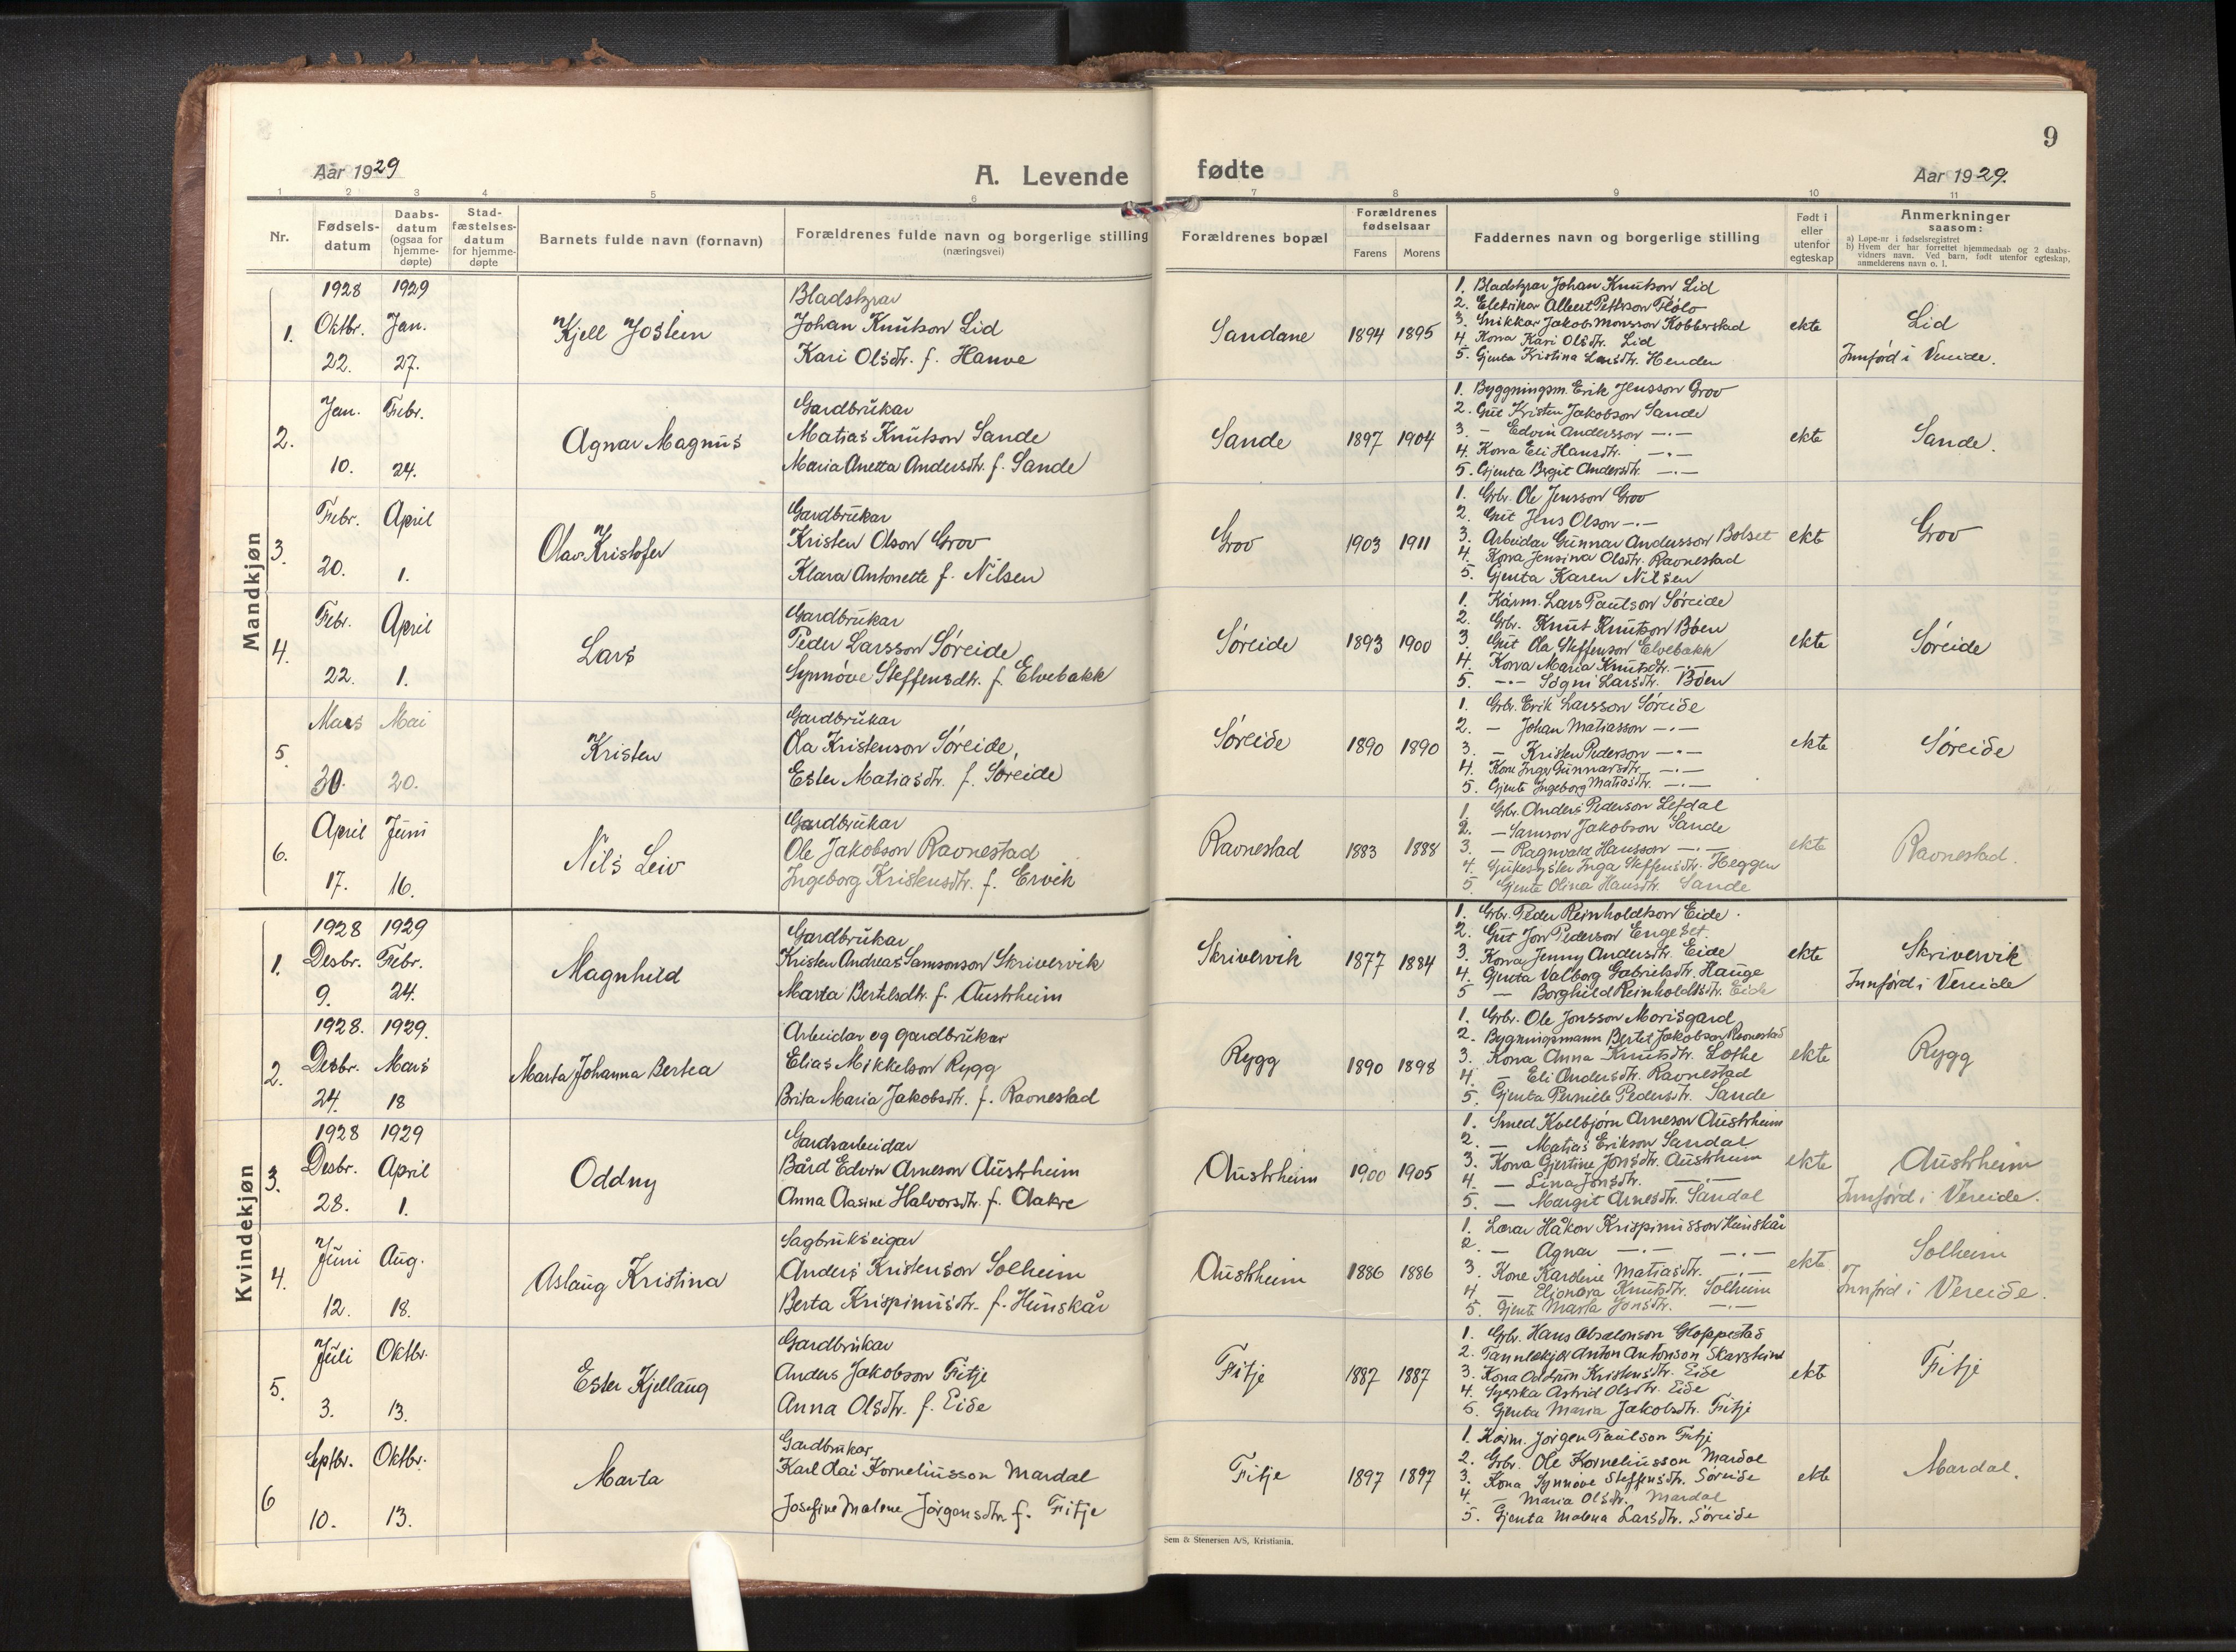 9
Aar 1929
A. Levende fødte
Aar 1929.
1 2 3 4 5 6 7 8 9 10 11
Nr.
Fødsels-
datum
Daabs-
datum
(ogsaa for
hjemme-
døpte)
Stad-
fæstelses-
datum
for hjemme-
døpte
Barnets fulde navn (fornavn)
Forældrenes fulde navn og borgerlige stilling
(næringsvei)
Forældrenes bopæl
Forældrenes
fødselsaar
Farens Morens
Faddernes navn og borgerlige stilling
Født i
eller
utenfor
egteskap
Anmerkninger
saasom:
a) Løpe-nr i fødselsregistret
b) Hvem der har forrettet hjemmedaab og 2 daabs-
vidners navn. Ved barn, født utenfor egteskap,
anmelderens navn o. l.
Mandkjøn
1.
1928 Oktbr. 22.
1929 Jan. 27.
Kjell Jostein
Bladstyrar
Johan Knutson Lid
Kari Olsdtr. f. Hauve
Sandane
1894 1895
1. Bladstyrar Johan Knutson Lid
2. Elektrikar Albert Petterson Flølo
3. Snikkar Jakob Monsson Kobberstad
4. Kona Kari Olsdtr. Lid
5. Gjenta Kristina Larsdtr. Henden
ekte
Lid
Innførd i Vereide.
2.
Jan. 10.
Febr. 24.
Agnar Magnus
Gardbrukar
Matias Knutson Sande
Maria Anetta Andersdtr. f. Sande
Sande
1897 1904
1. Byggningsm. Erik Jensson Grov
2. Gut Kristen Jakobson Sande
3. — Edvin Andersson —·—
4. Kona Eli Hansdtr. —·—
5. Gjenta Brgit Andersdtr. —·—
ekte
Sande.
3.
Febr. 20.
April 1.
Olav Kristofer
Gardbrukar
Kristen Olson Grov
Klara Antonette f. Nilsen
Grov
1903 1911
1. Grbr. Ole Jensson Grov
2. Gut Jens Olson —·—
3. Arbeidar Gunnar Andersson Bolset
4. Kona Jensina Olsdtr. Ravnestad
5. Gjenta Karen Nilsen
ekte
Grov
4.
Febr. 22.
April 1.
Lars
Gardbrukar
Peder Larsson Søreide
Synnøve Steffensdtr. f. Elvebakk
Søreide
1893 1900
1. Kårm. Lars Paulson Søreide
2. Grbr. Knut Knutson Bøen
3. Gut Ola Steffenson Elvebakk
4. Kona Maria Knutsdtr. —·—
5. —·— Sogni Larsdtr. Bøen
ekte
Søreide
5.
Mars 30.
Mai 20.
Kristen
Gardbrukar
Ola Kristenson Søreide,
Ester Matiasdtr. f. Søreide
Søreide
1890 1890
1. Grbr. Erik Larsson Søreide
2. — Johan Matiasson —·—
3. — Kristen Pederson —·—
4. Kone Inger Gunnarsdtr. —·—
5. Gjente Ingeborg Matiasdtr. —·—
ekte
Søreide
6.
April 17.
Juni 16.
Nils Leiv
Gardbrukar
Ole Jakobson Ravnestad
Ingeborg Kristensdtr. f. Ervik
Ravnestad
1883 1888
1. Grbr. Anders Pederson Lefdal
2. — Samson Jakobson Sande
3. — Ragnvald Hansson —·—
4. Sjukesyster Inga Steffensdtr. Heggen
5. Gjente Olina Hansdtr. Sande
ekte
Ravnestad.
Kvindekjøn
1.
1928 Desbr. 9.
1929 Febr. 24.
Magnhild
Gardbrukar
Kristen Andreas Samsonson Skrivervik
Marta Bertelsdtr. f. Austrheim
Skrivervik
1877 1884
1. Grbr. Peder Reinholdtson Eide.
2. Gut Jon Pederson Engeset.
3. Kona Jenny Andersdtr. Eide
4. Gjenta Valborg Gabrielsdtr. Hauge
5 — Borghild Reinholdtsdtr. Eide
ekte
Skrivervik
Innførd i Vereide
2.
1928. Desbr. 24.
1929. Mars 18
Marta Johanna Bertea
Arbeidar og gardbrukar
Elias Mikkelson Rygg
Brita Maria Jakobsdtr. f. Ravnestad
Rygg
1890 1898
1. Grbr. Ole Jonsson Morisgard
2. Bygningsmann Bertel Jakobson Ravnestad
3. Kona Anna Knutsdtr. Lothe
4. — Eli Andersdtr. Ravnestad
5. Gjenta Pernille Pedersdtr. Sande
ekte
Rygg
3.
1928 Desbr. 28.
1929 April 1.
Oddny
Gardsarbeidar
Bård Edvin Arneson Austrheim
Anna Aasine Halvorsdtr. f. Aakre
Austrheim
1900 1905
1. Smed Kvelbjørn Arneson Austrheim
2. — Matias Erikson Sandal
3. Kona Gjertine Jonsdtr. Austrheim
4. — Lina Jonsdtr. —·—
5. — Margit Arnesdtr. Sandal
ekte
Austrheim
Innførd i Vereide.
4.
Juni 12.
Aug. 18.
Aslaug Kristina
Sagbrukseigar
Anders Kristenson Solheim
Berta Krispinusdtr. f. Hunskår
Austrheim
1886 1886
1. Lærar Håkon Krispinusson Hunskår
2. — Agnar —·— —·—
3. Kone Kardine Matiasdtr. —·—
4. — Elionora Knutsdtr. Solheim
5. Gjente Marta Jonsdtr. —·—
ekte
Solheim
Innførd i Vereide.
5.
Juli 3.
Oktbr. 13.
Ester Kjellaug
Gardbrukar
Anders Jakobson Fitje
Anna Olsdtr. f. Eide
Fitje
1887 1887
1. Grbr. Hans Absalonson Gloppestad
2. Tannlækjar Anton Antonson Skarstein
3. Kona Oddrun Kristensdtr. Eide
4. Syerska Astrid Olsdtr. Eide
5. Gjenta Maria Jakobsdtr. Fitje
ekte
Fitje
6
Septbr. 10.
Oktbr. 13.
Marta
Gardbrukar
Karl Kornelinsson Mardal
Josefine Malene Jørgensdtr. f. Fitje
Fitje
1897 1897
1. Kårm. Jørgen Paulson Fitje
2. Grbr. Ole Korneliusson Mardal
3. Kona Synnøve Steffensdtr. Søreide
4. — Maria Olsdtr. Mardal
5. Gjenta Malena Larsdtr. Søreide
ekte
Mardal.
Sem & Stenersen A/S, Kristiania.